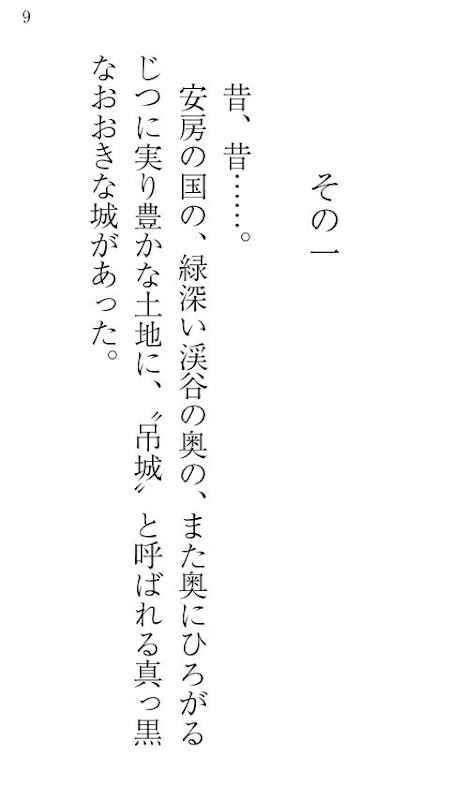 9
その一
昔、昔……。
安房の国の、緑深い渓谷の奥の、また奥にひろがる
じつに実り豊かな土地に、〝吊城〟と呼ばれる真っ黒
なおおきな城があった。